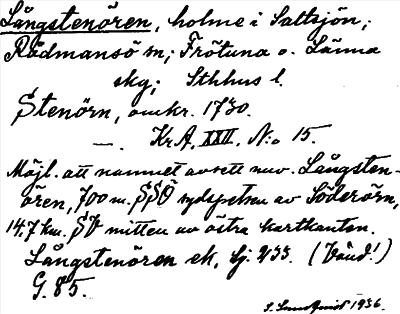 Långstenören, holme i Saltsjön;
Rådmansö sn; Frötuna o. Länna
skg; Sthlms l.
Stenörn, omkr. 1730.
—. Kr A, XXII, N:o 15.
Möjl. att namnet avsett nuv. Långsten-
ören, 700 m. SSÖ sydspetsen av Söderörn,
14,7 km. SV mitten av östra kartkanten.
Långstenören ek, Sj. 233. (Vänd!)
G. 85.
1936.